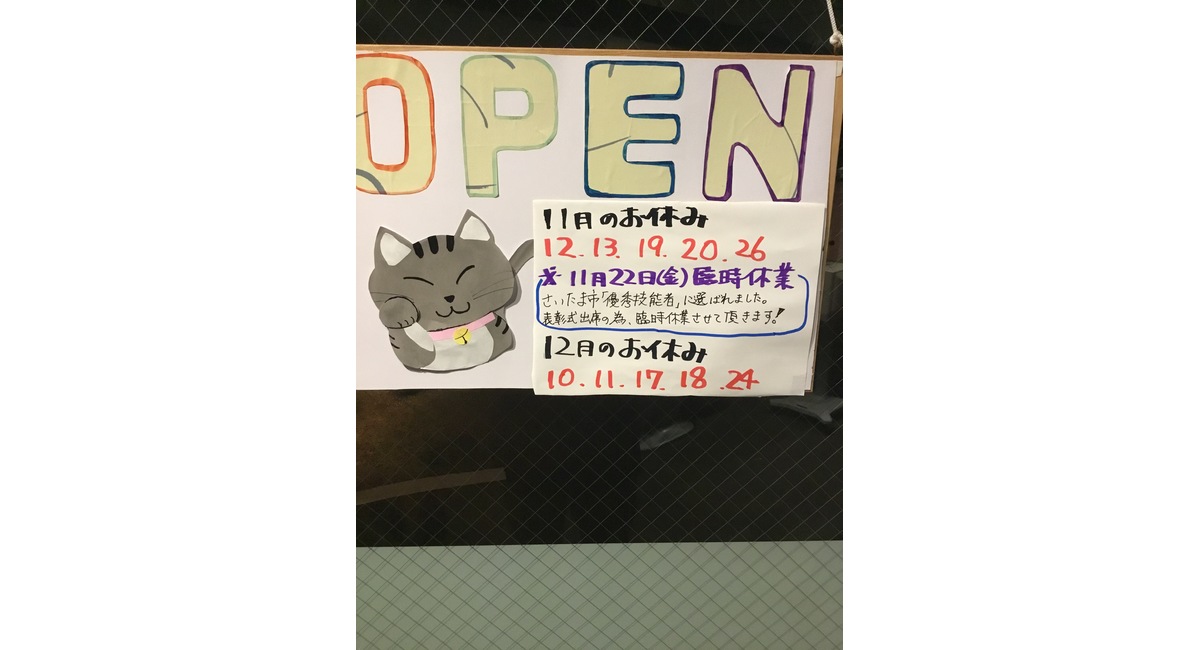 OPEN
11月のお休み
12.13.19.20.26
※11月22日(金)臨時休業
さいたま市「優秀技能者」に選ばれました。
表彰式出席の為、臨時休業させて頂きます!
12月のお休み
10.11.17.18.24